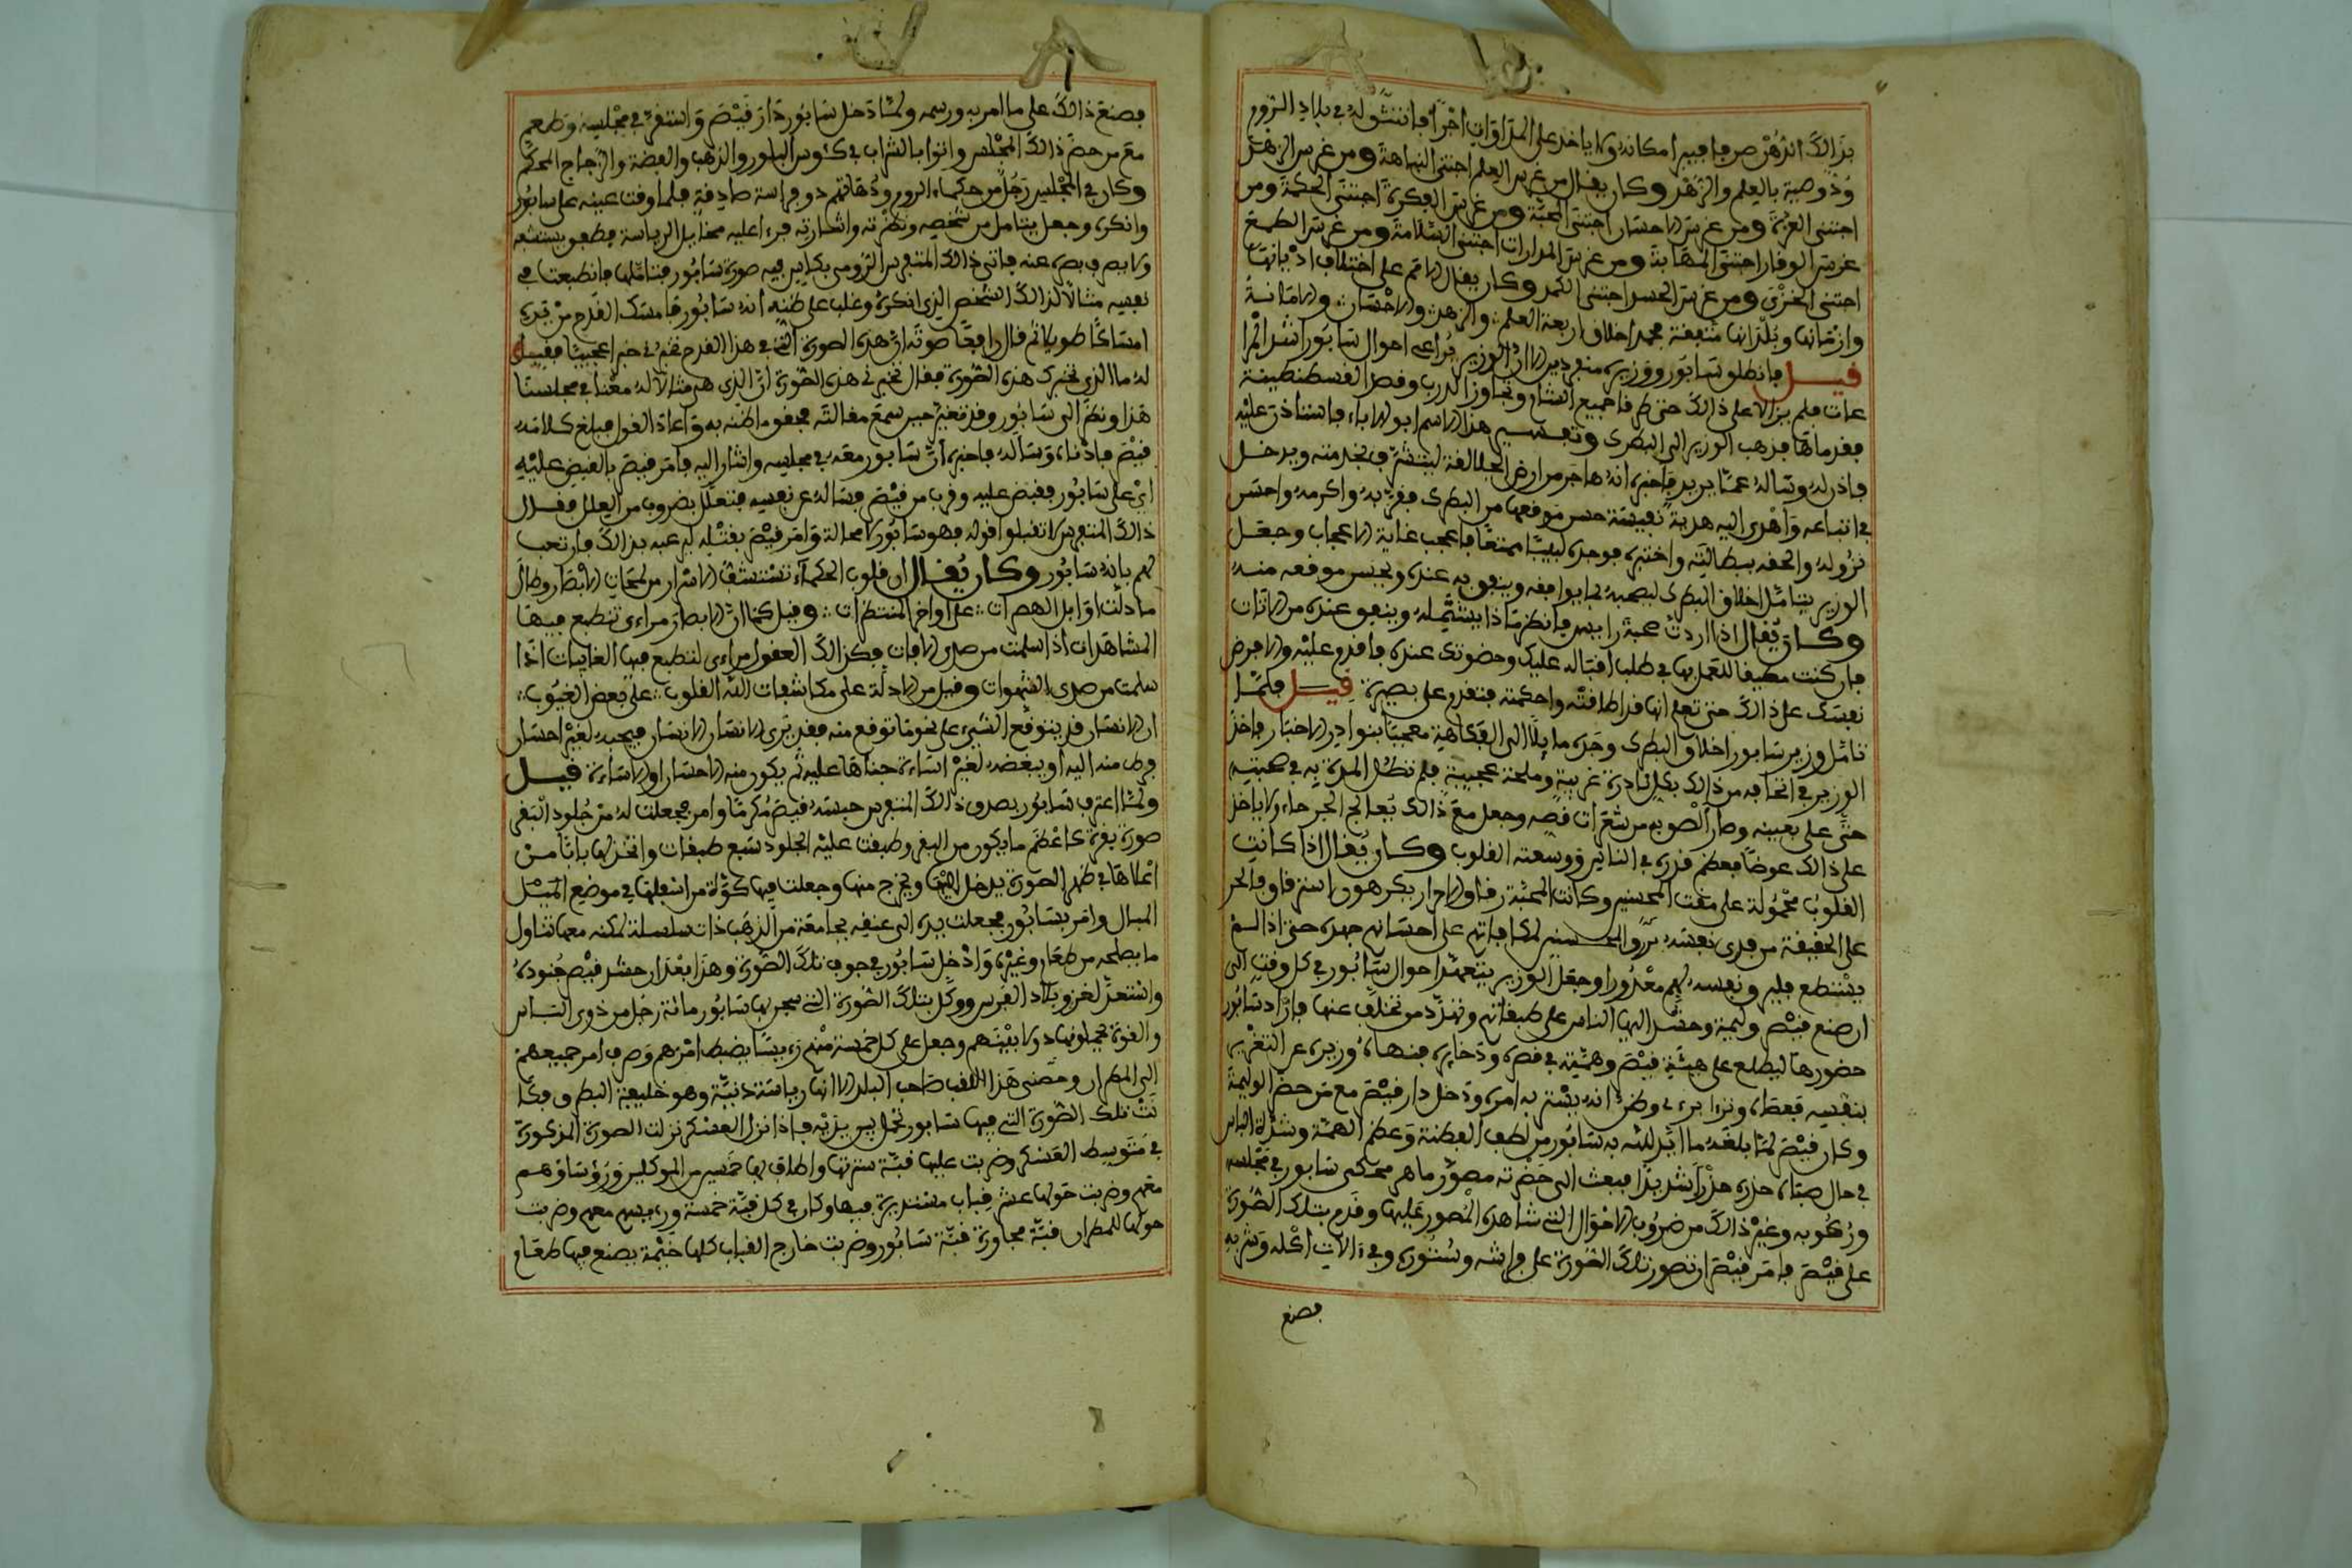 بذالك الدهن صرفا فيبرا مكانه ولا ياخذ على المداواة اجرا فانتشر له في بلاد الروم
وُدّ وصيت بالعلم والزهد وكان يقال من غرس العلم اجتنى النباهة ومن غرس الزهد
اجتنى العزة ومن غرس الاحسان اجتنى المحبة ومن غرس الفكرة اجتنى الحكمة ومن
غرس الوقار اجتنى المهابة ومن غرس المدارات اجتنى السلامة ومن غرس الطمع
اجتنى الخزى ومن غرس الحسد اجتنى الكمد وكان يقال الامم على اختلاف اديانها
وازمانها وبلدانها متفقة بحمد اخلاق اربعة العلم والزهد والاحسان والامانة
قيل فانطلق سابور ووزيره منفردين الا ان الوزير يراعي احوال سابور اشد المرا
عات فلم يزالا على ذالك حتى طرقا جميع الشام وتجاوزا الدرب وقصدا القسطنطينة
فقدماها فذهب الوزير الى البطرك وتفسير هذا الاسم ابو الاباء فاستاذن عليه
فاذن له وساله عما يريد فاخبره انه هاجر من ارض الجلالقة ليتشرف بخدمته ويدخل
في اتباعه واهدى اليه هدية نفيسة حسن موقعها من البطرك فقربه واكرمه واحسن
نزوله والحقه ببطانته واختبره فوجده لبيبا ممتعا فاعجب غاية الاعجاب وجعل
الوزير يتامل اخلاق البطرك ليصحبه بما يوافقه وينفق به عنده ويحسن موقعه منه
وكان يقال اذا اردت صحبة رئيس فانظر ماذا يستميله وينفق عنده من الاداب
فان كنت مطيقا للتعمل بها في طلب اقباله عليك وحضوتك عنده فاقدم عليه والا فرض
نفسك على ذالك حتى تعلم انها قد اطاقته واحكمته فتقدم على بصيرة قيل فلما
تامل وزير سابور اخلاق البطرك وجده مايلا الى الفكاهة معجبا بنوادر الاخبار فاخذ
الوزير في اتحافه من ذالك بكل نادرة غريبة وملحة عجيبة فلم تطل المدة به في صحبته
حتى حلى بعينه وصار الصق به من شعرات قصه وجعل مع ذالك يعالج الجرحاء ولا ياخذ
على ذالك عوضا فعظم قدره في الناس ووسعته القلوب وكان يقال اذا كانت
القلوب مجبولة على مقت المحسنين وكانت المحبة رقا والاحرار يكرهون استرقاق الحر
على الحقيقة من فدى نفسه من رق المحسنين بمكافاتهم على احسانهم جهده حتى اذا لم
يستطع فليبر ونفسه لهم معذورا وجعل الوزير يتعهد احوال سابور في كل وقت الى
ان صنع قيصر وليمة وحشر اليها الناس على طبقاتهم وتهدد من تخلف عنها فاراد سابور
حضورها ليطلع على هيئة قيصر وهمته في قصره وذخايره فنهاه وزيره عن التغرير
بنفسه فعصاه وتزيا بزي وظن انه يستر به امره ودخل دار قيصر مع من حضر الوليمة
وكان قيصر لما بلغه ما ايد الله به سابور من لطف الفطنة وعظم الهمة وشدة الباس
في حال صباه حذره حذرا شديدا فبعث الى حضرته مصور ماهر فحكى سابور في مجلسه
وركوبه وغير ذالك من ضروب الاحوال التي شاهده المصور عليها وقدم بتلك الصورة
على قيصر فامر قيصر ان تصور تلك الصورة على فراشه وستوره وفي ءالات اكله وشربه
فصنع
فصنع ذالك على ما امر به ورسمه ولما دخل سابور دار قيصر واستقر في مجلسه وطعم
مع من حضر ذالك المجلس واتوا بالشراب في كئوس البلور والذهب والفضة والزجاج المحكم
وكان في المجلس رجل من حكماء الروم ودهاتهم ذو فراسة صادقة فلما وقعت عينه على سابور
وانكره وجعل يتامل من شخصه ونظرته واشارته فرءا عليه مخايل الرياسة فطفق يستشفه
ولا يصرف بصره عنه فاتى ذالك المتفرس الرومى بكاس فيه صورة سابور فتاملها فانطبعت في
نفسه مثالا لذالك الشخص الذي انكره وغلب على ظنه انه سابور فامسك القدح من يده
امساكا طويلا ثم قال رافعا صوته ان هذه الصورة التي في هذا القدح تخبرني خبرا عجيبا فقيل
له ما الذي تخبرك هذه الصورة فقال تخبرني هذه الصورة ان الذي هي مثالا له معنا في مجلسنا
هذا ونظر الى سابور وقد تغير حين سمع مقالته فحقق ما ظنه به واعاذ القول فبلغ كلامه
قيصر فادناه وساله فاخبره ان سابور معه في مجلسه واشار اليه فامر قيصر بالقبض عليه
اي على سابور فقبض عليه وقرب من قيصر فساله عن نفسه فتعلل بضروب من العلل فقال
ذالك المتفرس لا تقبلوا قوله فهو سابور لا محالة وامر قيصر بقتله ليرعبه بذالك فاعترف
لهم بانه سابور وكان يقال ان قلوب الحكماء تستشف الاسرار من لمحات الابصار وطال
ما دلت اوايل المبصرات على اواخر المنتظرات وقيل كما ان الابصار مراءى تنطبع فيها
المشاهدات اذا سلمت من صدى الافات فكذالك العقول مراءى تنطبع فيها الغايبات اذا
سلمت من صدى الشهوات وقيل من الادلة على مكاشفات الله القلوب على بعض الغيوب
ان الانسان قد يتوقع الشيء على نحو ما توقع منه فقد يرى الانسان الانسان فيحبه لغير احسان
فرط منه اليه او يبغضه لغير اساءة جناها عليه ثم يكون منه الاحسان او الاساءة قيل
ولما اعترف سابور بصدق ذالك المتفرس حبسه قيصر مكرما وامر فجعلت له من جلود البقر
صورة بقرة كاعظم ما يكون من البقر وطبقت عليه الجلود سبع طبقات واتخذ لها بابا من
اعلاها في ظهر الصورة يدخل اليها ويخرج منها وجعلت فيها كوة من اسفلها في موضع المبل
المبال وامر بسابور فجعلت يده الى عنقه بجامعة من الذهب ذات سلسلة تمكنه معها تناول
ما يصلحه من طعام وغيره وادخل سابور في جوف تلك الصورة وهذا بعد ان حشر قيصر جنوده
واستعد لغزو بلاد الفرس ووكل بتلك الصورة التي سجن بها سابور مائة رجل من ذوى الباس
والقوة يحملونها دولا بينهم وجعل على كل خمسة منهم رءيسا يضبط امرهم وصرف امر جميعهم
الى المطران ومعنى هذا اللقب صاحب البلد الا انها رياسة دينية وهو خليفة البطرق فكا
نت تلك الصورة التي فيها سابور تحمل بين يديه فاذا نزل العسكر نزلت الصورة المذكورة
في متوسط العسكر وضربت عليها قبة سترتها واطاف بها خمسين من الموكلين ورؤساؤهم
معهم وضربت حولها عشر قباب مستديرة فيها وكان في كل قبة خمسة ورءيسهم معهم وضربت
حولها للمطران قبة مجاورة قبة سابور وضربت خارج القباب كلها خيمة يصنع فيها طعام